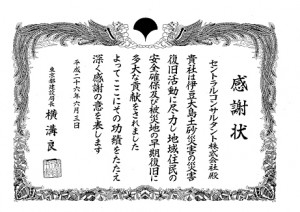 感謝状
セントラルコンサルタント株式会社殿
貴社は伊豆大島土砂災害の災害
復旧活動に尽力し地域住民の
安全確保及び被災地の早期復旧に
多大な貢献をされました
よってここにその功績をたたえ
深く感謝の意を表します
平成二十六年六月三日
東京都建設局長 横溝良一